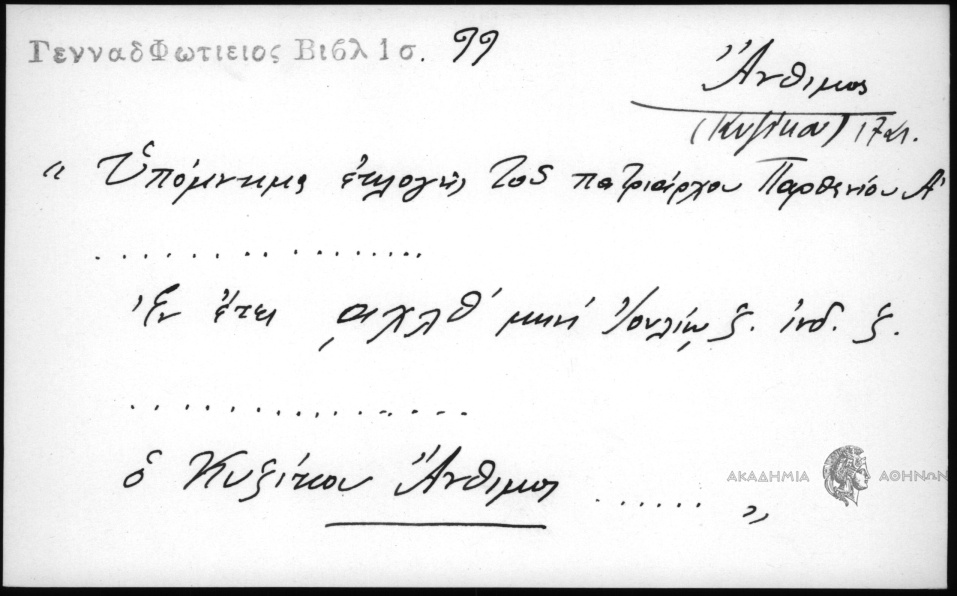 Γενναδ Φωτιειος Βιβλ 1σ. 99
Ἄνθιμος
(Κυζίκου) 17αι.
“ Ὑπόμνημα ἐκλογῆς τοῦ πατριάρχου Παρθενίου Α'
..................
Ἐν ἔτει ͵αχλθ' μηνί Ἰουλίῳ ζ. ἰνδ. ζ.
..................
ὁ Κυζίκου Ἄνθιμος ...... ”
ΑΚΑΔΗΜΙΑ ΑΘΗΝΩΝ